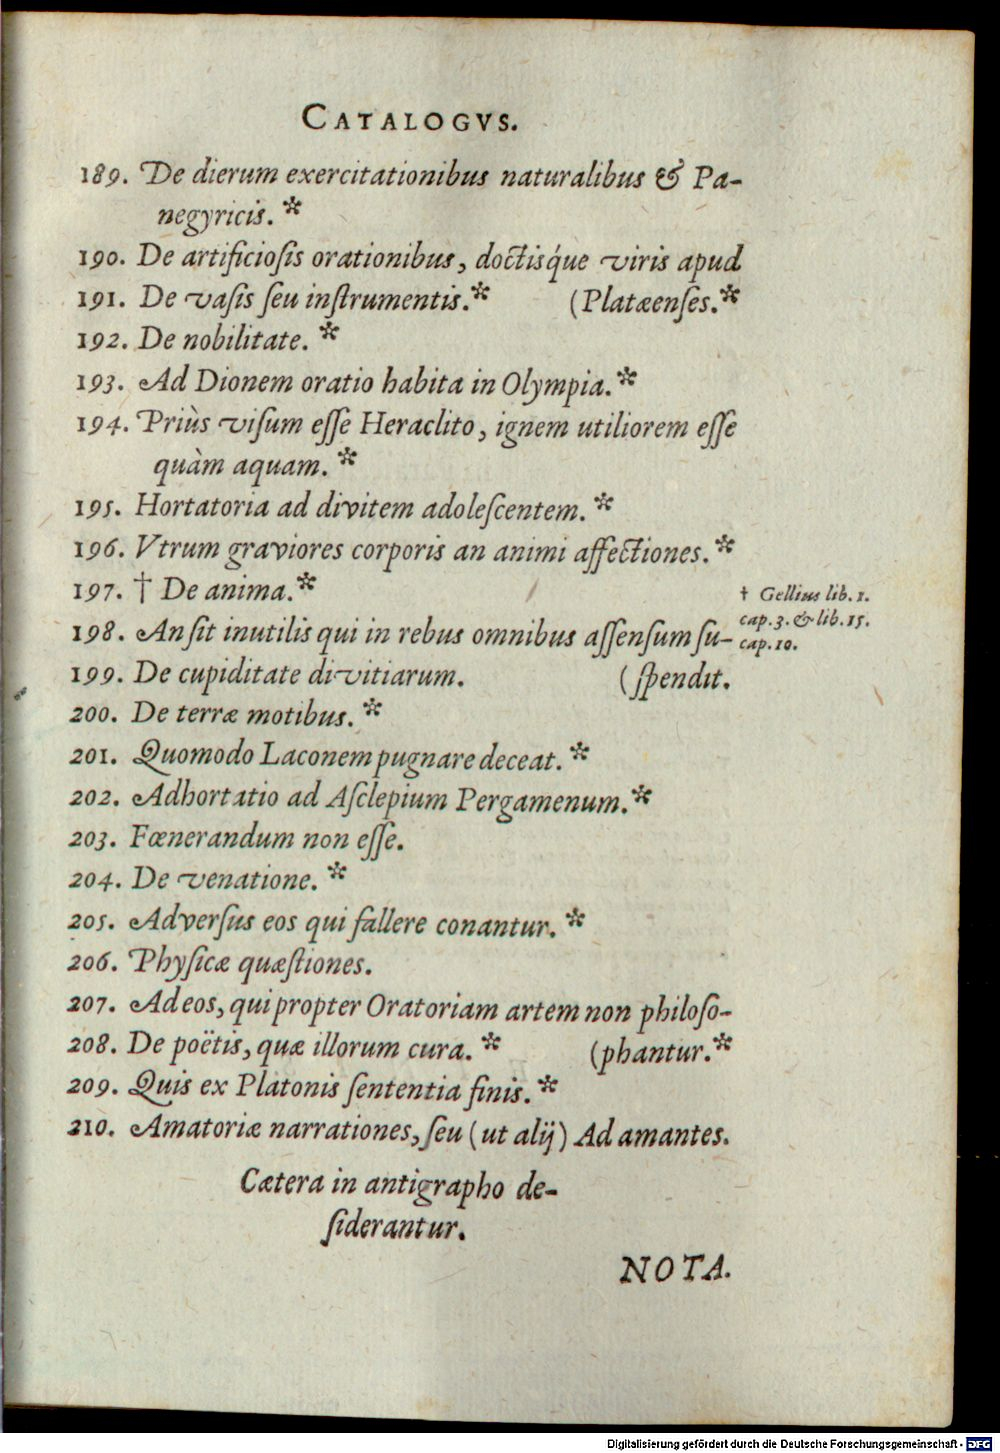 CATALOGVS.
189. De dierum exercitationibus naturalibus & Pa-
negyricis.*
190. De artificiosis orationibus, doctisq́ue viris apud
191. De vasis seu instrumentis.* (Platæenses.*
192. De nobilitate.*
193. Ad Dionem oratio habita in Olympia.*
194. Priùs visum esse Heraclito, ignem utiliorem esse
quàm aquam.*
195. Hortatoria ad divitem adolescentem.*
196. Vtrum graviores corporis an animi affectiones.*
197. † De anima.*
† Gellius lib. 1.
198. An sit inutilis qui in rebus omnibus assensum su-
cap. 3. & lib. 15.
cap. 10.
199. De cupiditate divitiarum. (spendit.
200. De terræ motibus.*
201. Quomodo Laconem pugnare deceat.*
202. Adhortatio ad Asclepium Pergamenum.*
203. Fœnerandum non esse.
204. De venatione.*
205. Adversus eos qui fallere conantur.*
206. Physicæ quæstiones.
207. Ad eos, qui propter Oratoriam artem non philoso-
208. De poëtis, quæ illorum cura.* (phantur.*
209. Quis ex Platonis sententia finis.*
210. Amatoriæ narrationes, seu (ut alij) Ad amantes.
Cætera in antigrapho de-
siderantur.
NOTA.
Digitalisierung gefördert durch die Deutsche Forschungsgemeinschaft - DFG